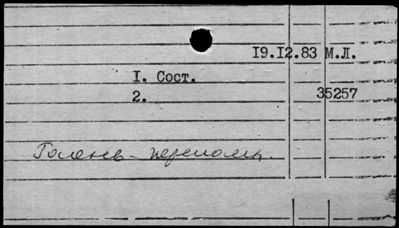 19.12.83 М.Л.
1. Сост.
2. 35257
Голень - переломы.